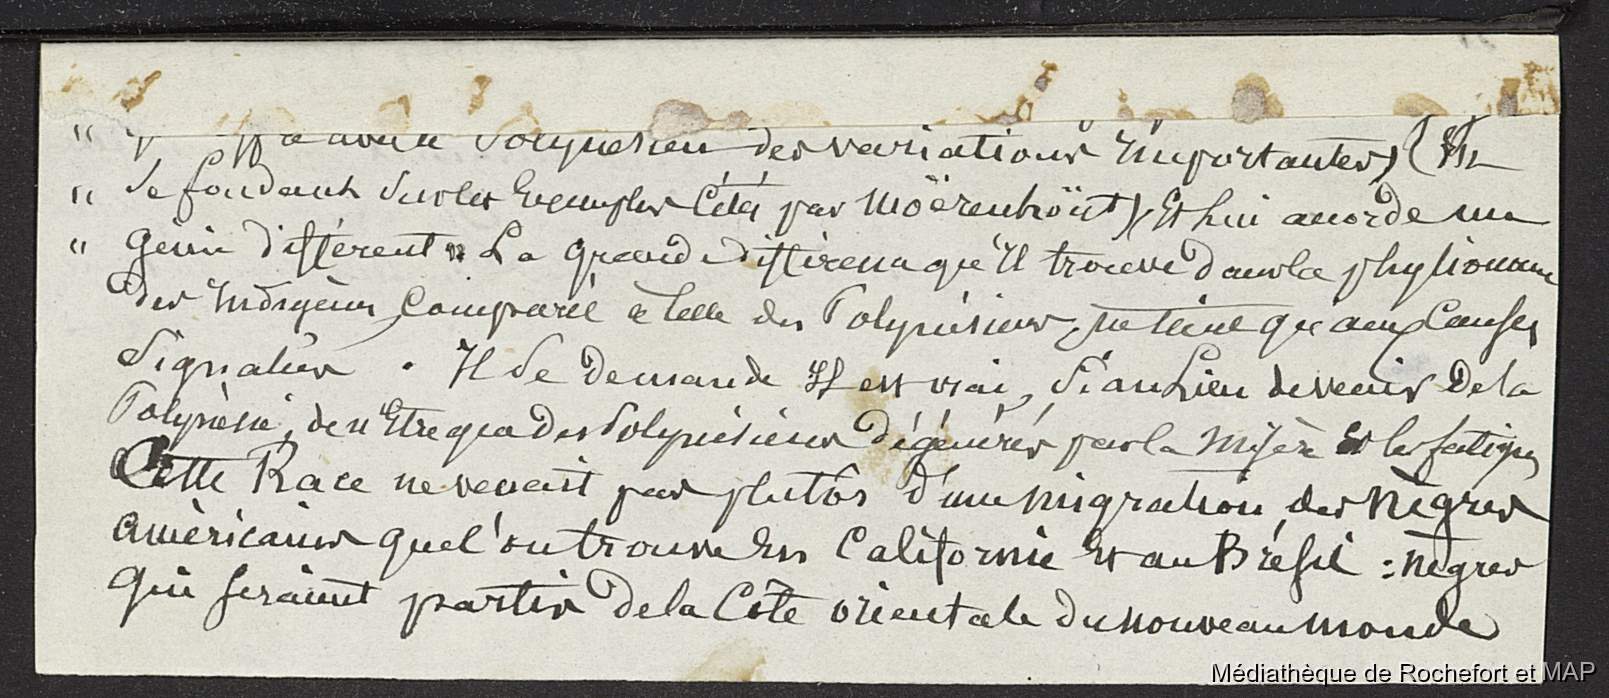 " Polynésien des variations importantes, (Il
" Se fondant sur les Exemples Cités par Moërenhoüt) Et lui accorde un
" Génie différent " La grande différence qu'Il trouve dans la physionomie
des Indigènes Comparée à Celle des Polynésiens, ne tient qu'aux Causes
Signalées. Il Se demande Il est vrai, Si au Lieu de venir De la
Polynésie, de n'Etre que des Polynésiens dégénérés par la Misère Et les fatigues
Cette Race ne venait pas plutôs d'une migration des Nègres
Américains que l'on trouve En Californie Et au Brésil : nègres
Qui seraient partis de la Côte orientale du nouveau monde
Médiathèque de Rochefort et MAP